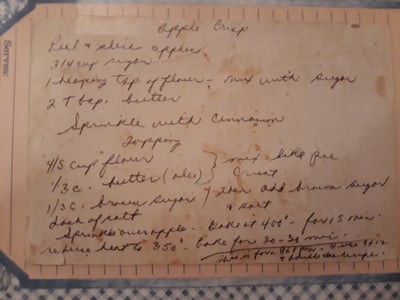 Serves:
Apple Crisp
Peel & slice apples
3/4 cup sugar
1 heaping tbsp of flour - mix with sugar
2 Tbsp. butter
Sprinkle with cinnamon
Topping
4/5 cup flour } mix like pie
1/3 c. butter (oleo) crust
1/3 c. brown sugar } then add brown sugar
dash of salt & salt
Sprinkle over apple. Bake at 400° - for 15 min.
reduce heat to 350° bake for 20-30 min.
This is for a pan. I use 9x12
& double the recipe.